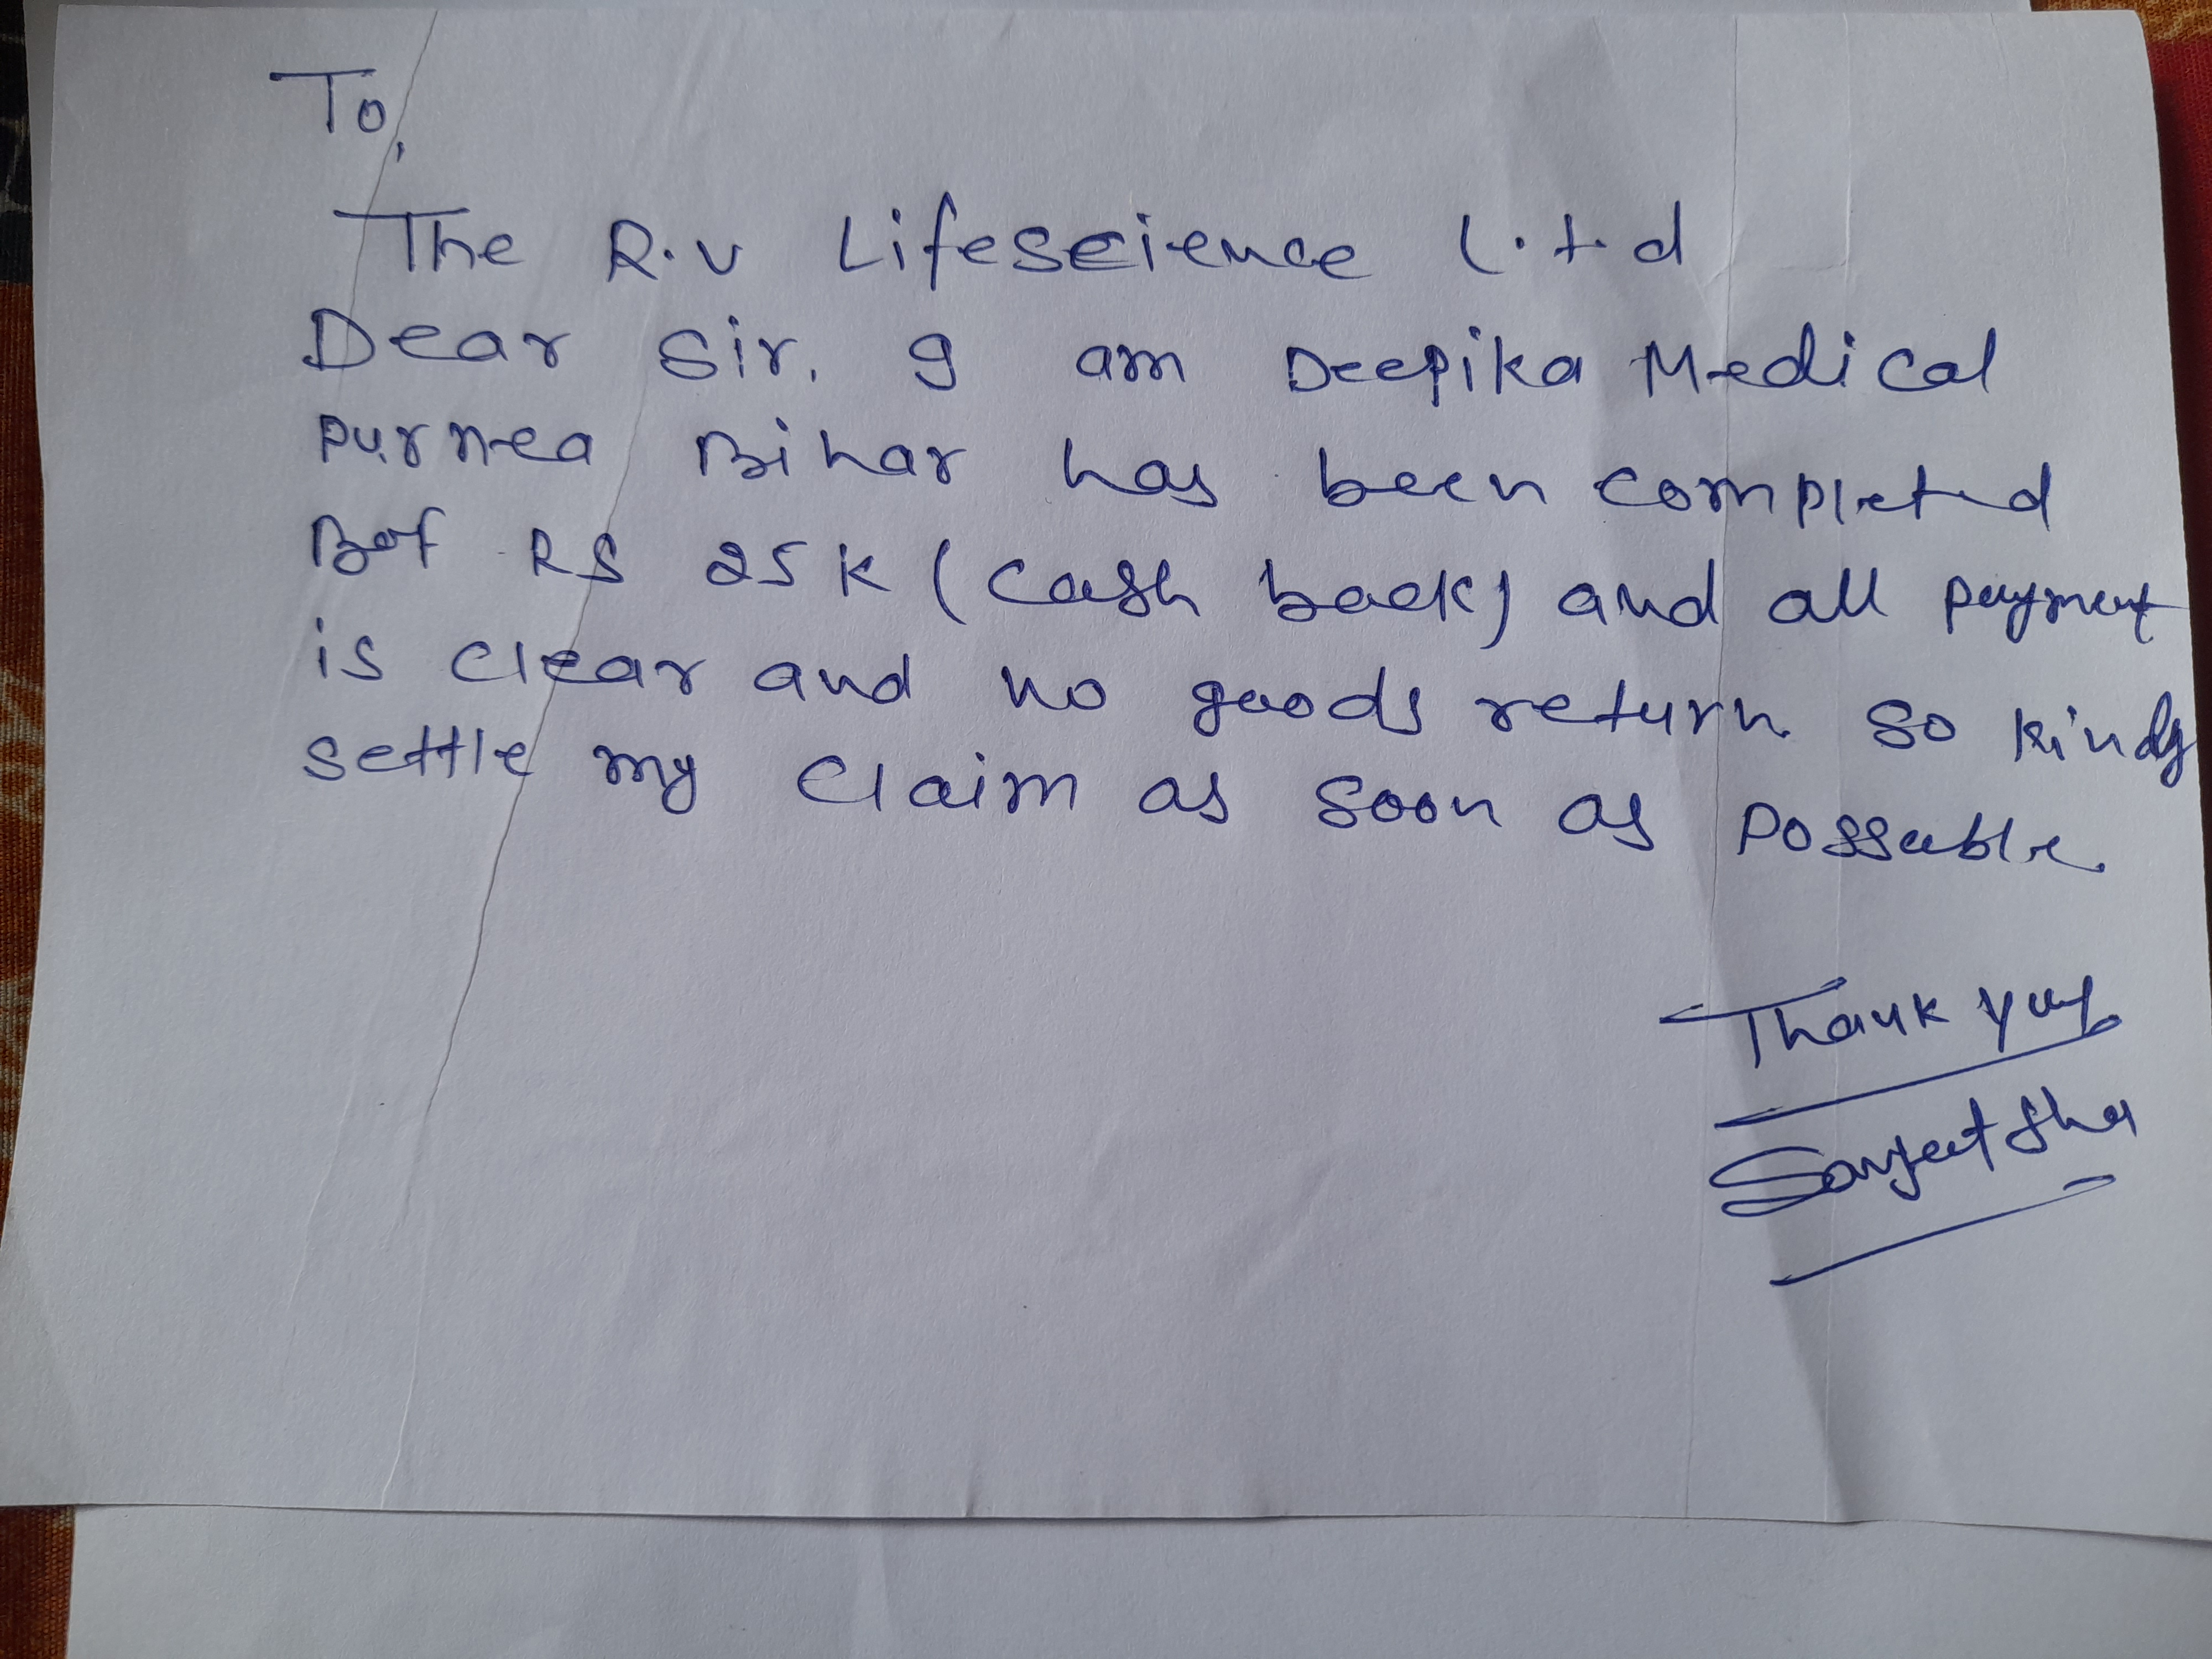 To,
The R.v Lifescience L.t.d
Dear Sir. I am Deepika Medical
Purnea Bihar has been completed
RS 25K (Cash back) and all payment
is clear and no goods return so kindly
settle my claim as soon as Possuble.
Thank you